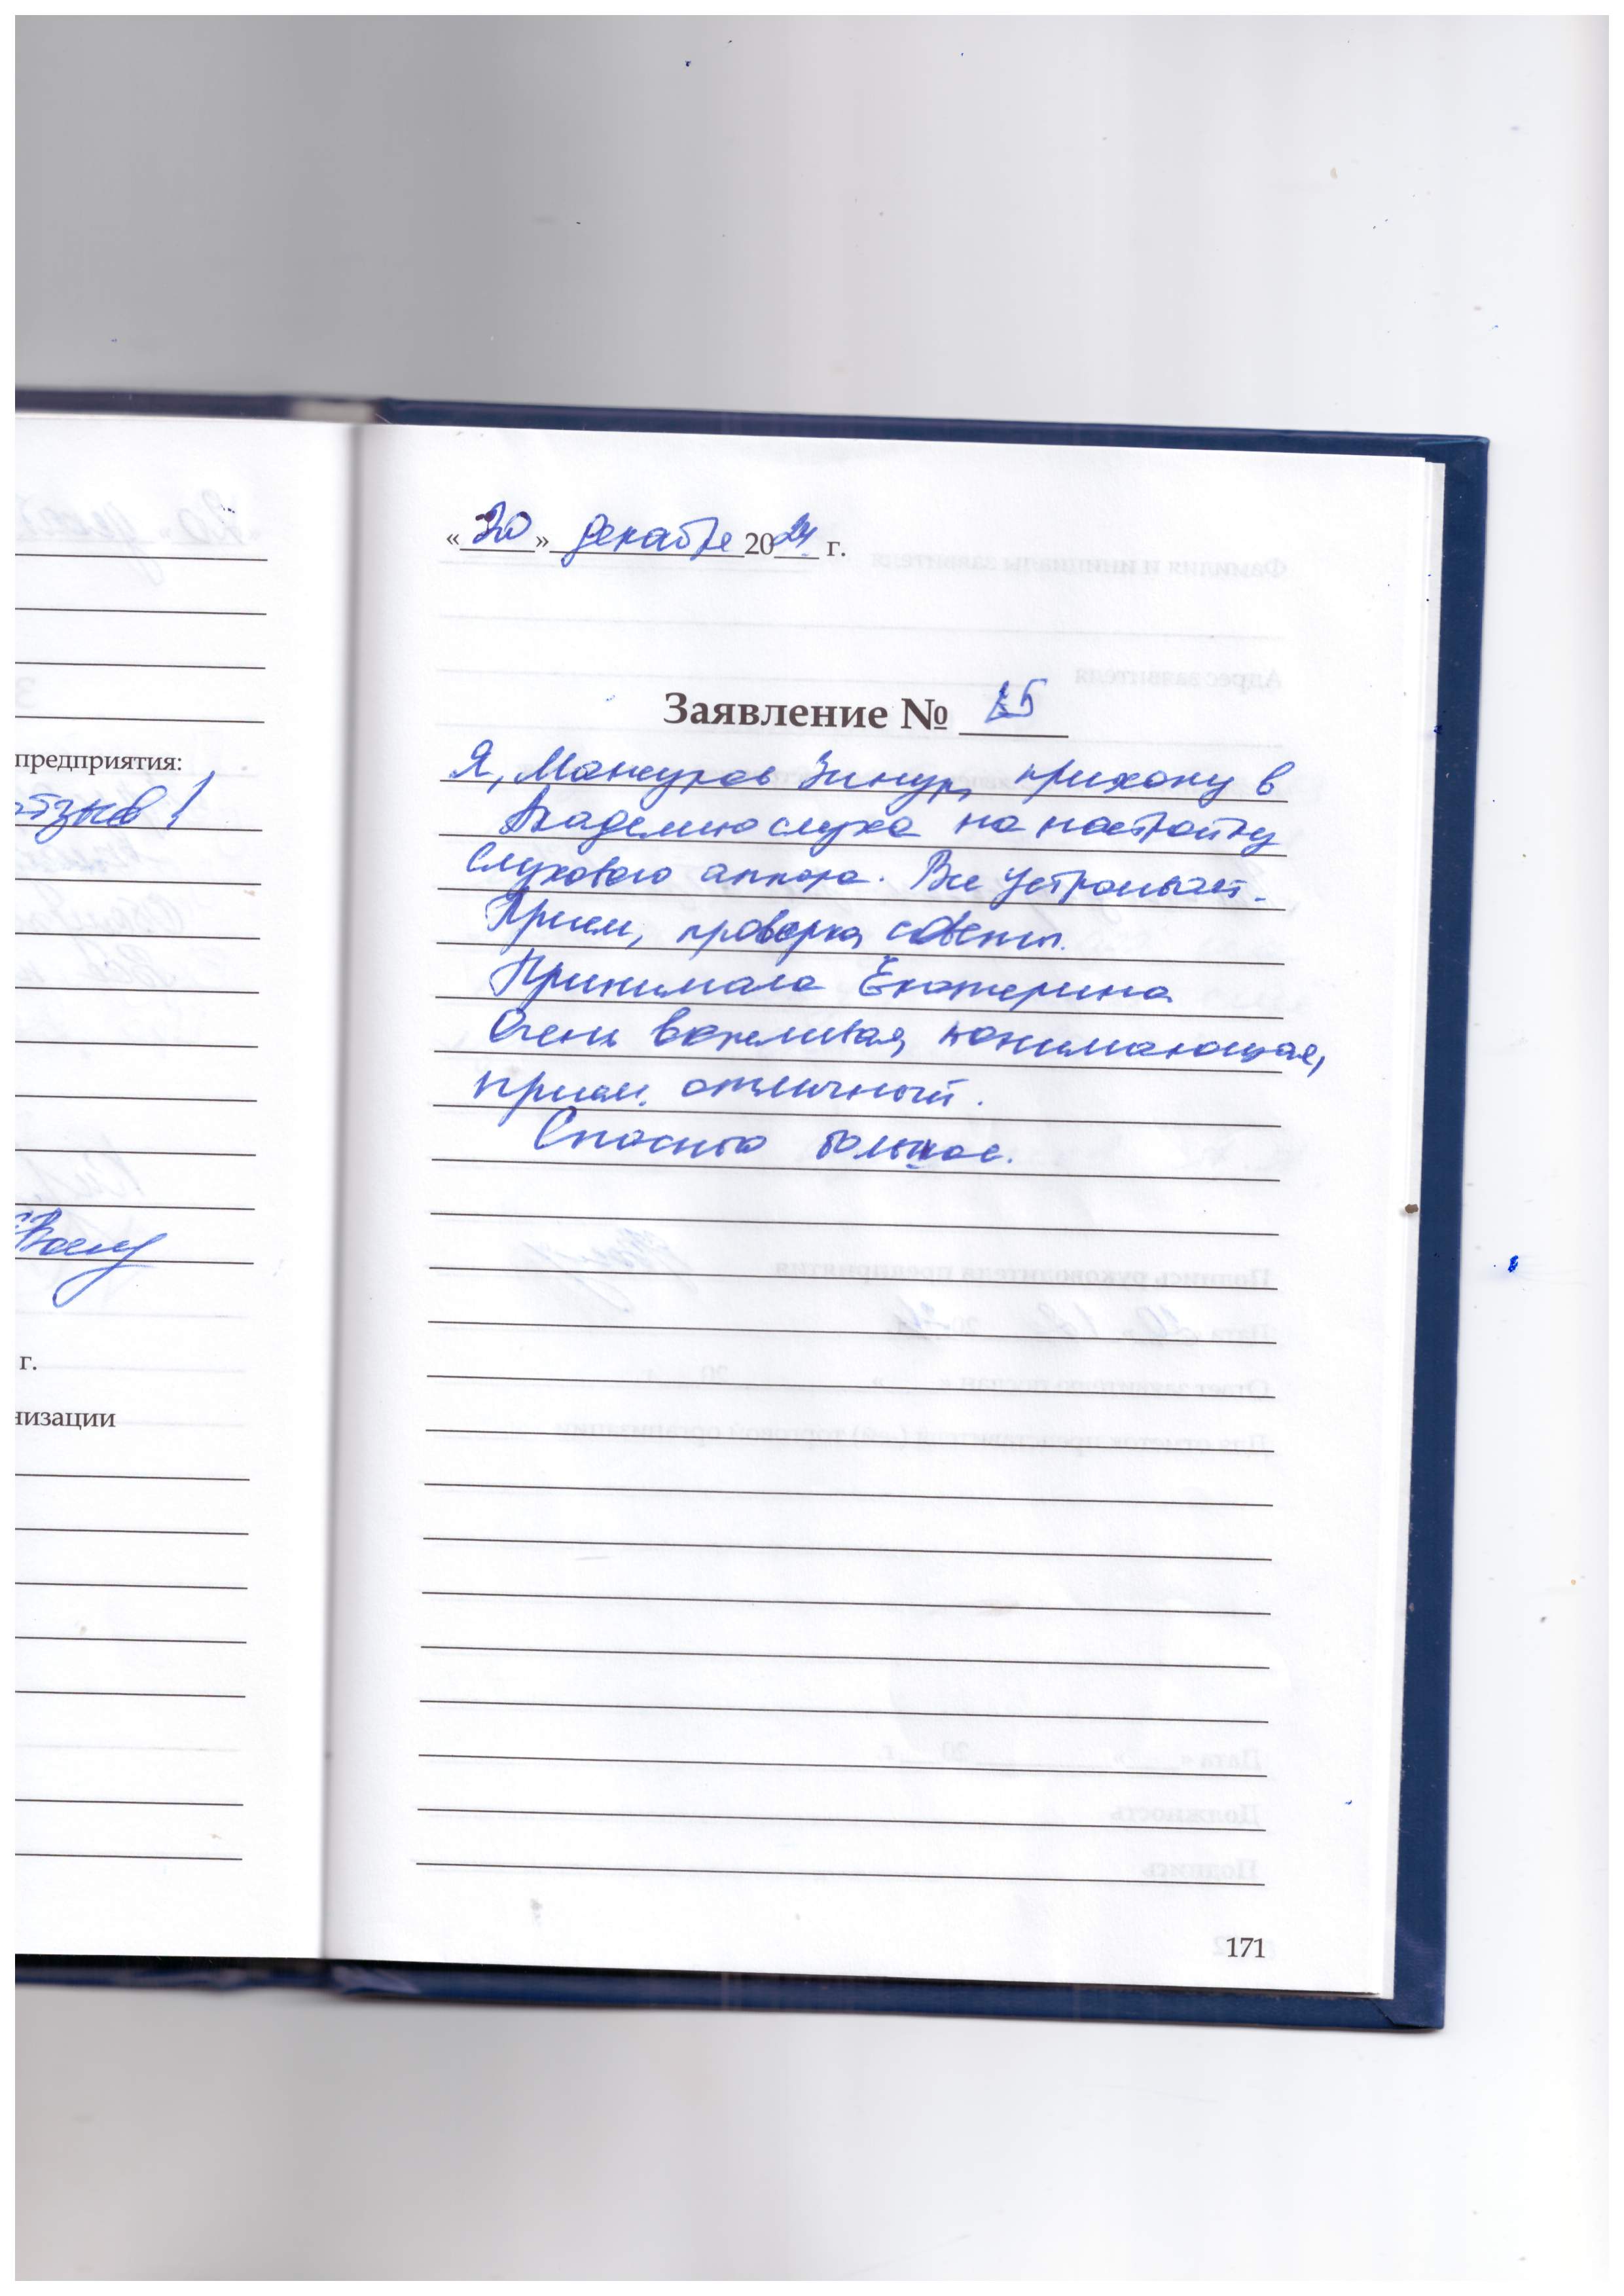 предприятия:
отзыв!
г.
низации
«20» декабре 2024 г.
Заявление № 15
Я, Мансуров Зинур, прихожу в
Академию слуха на настройку
слухового аппора. Все устроивает.
Прием, проверка, советы.
Принимала Екатерина
Очень вежливая, понимающая,
прием отличный.
Спасибо большое.
171